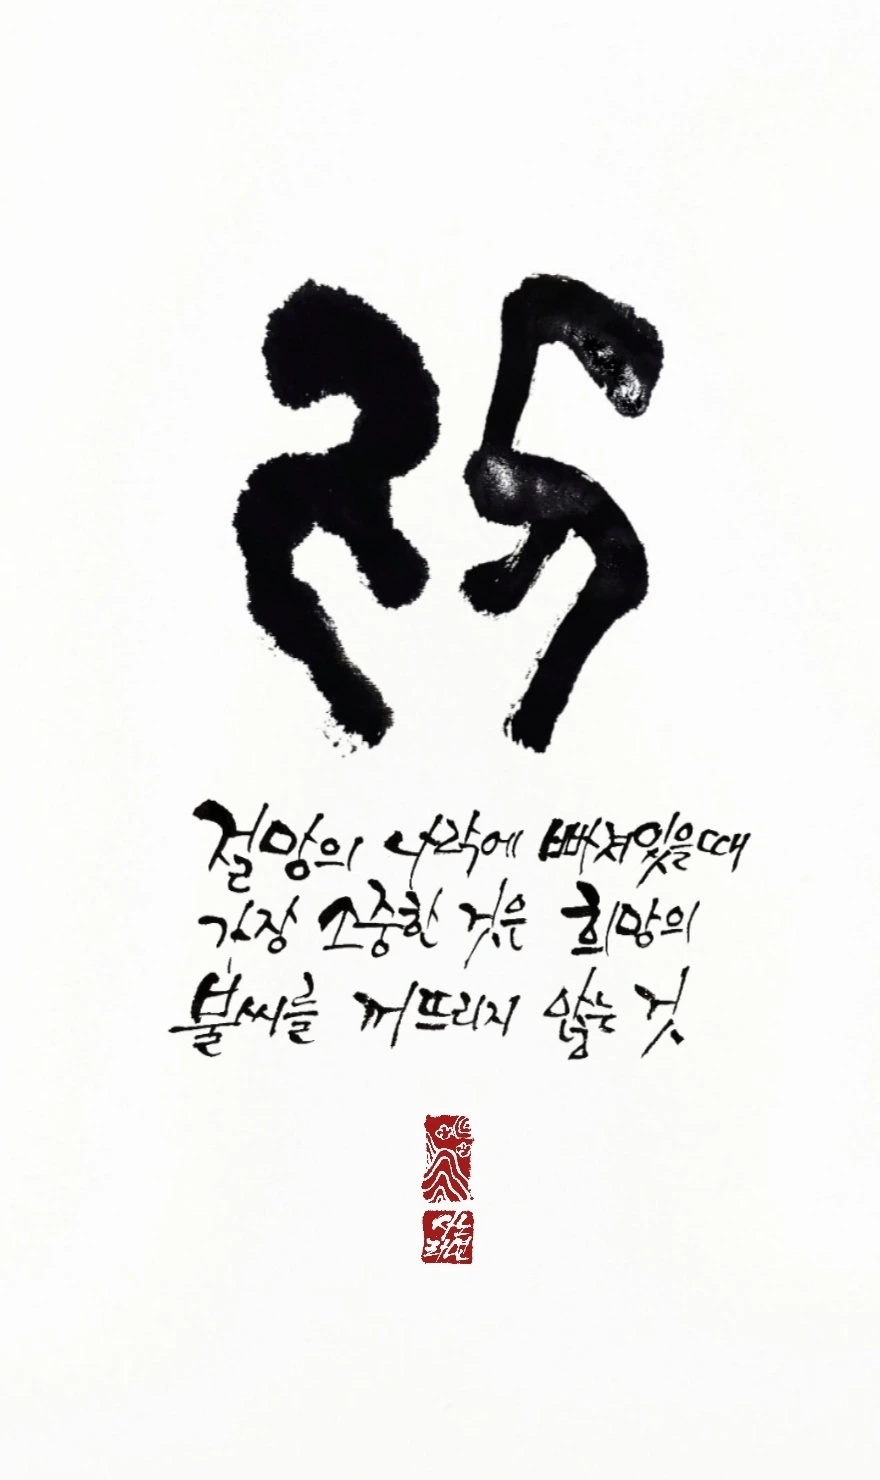 절망의 나락에 빠져있을때
가장 소중한 것은 희망의
불씨를 꺼뜨리지 않는 것